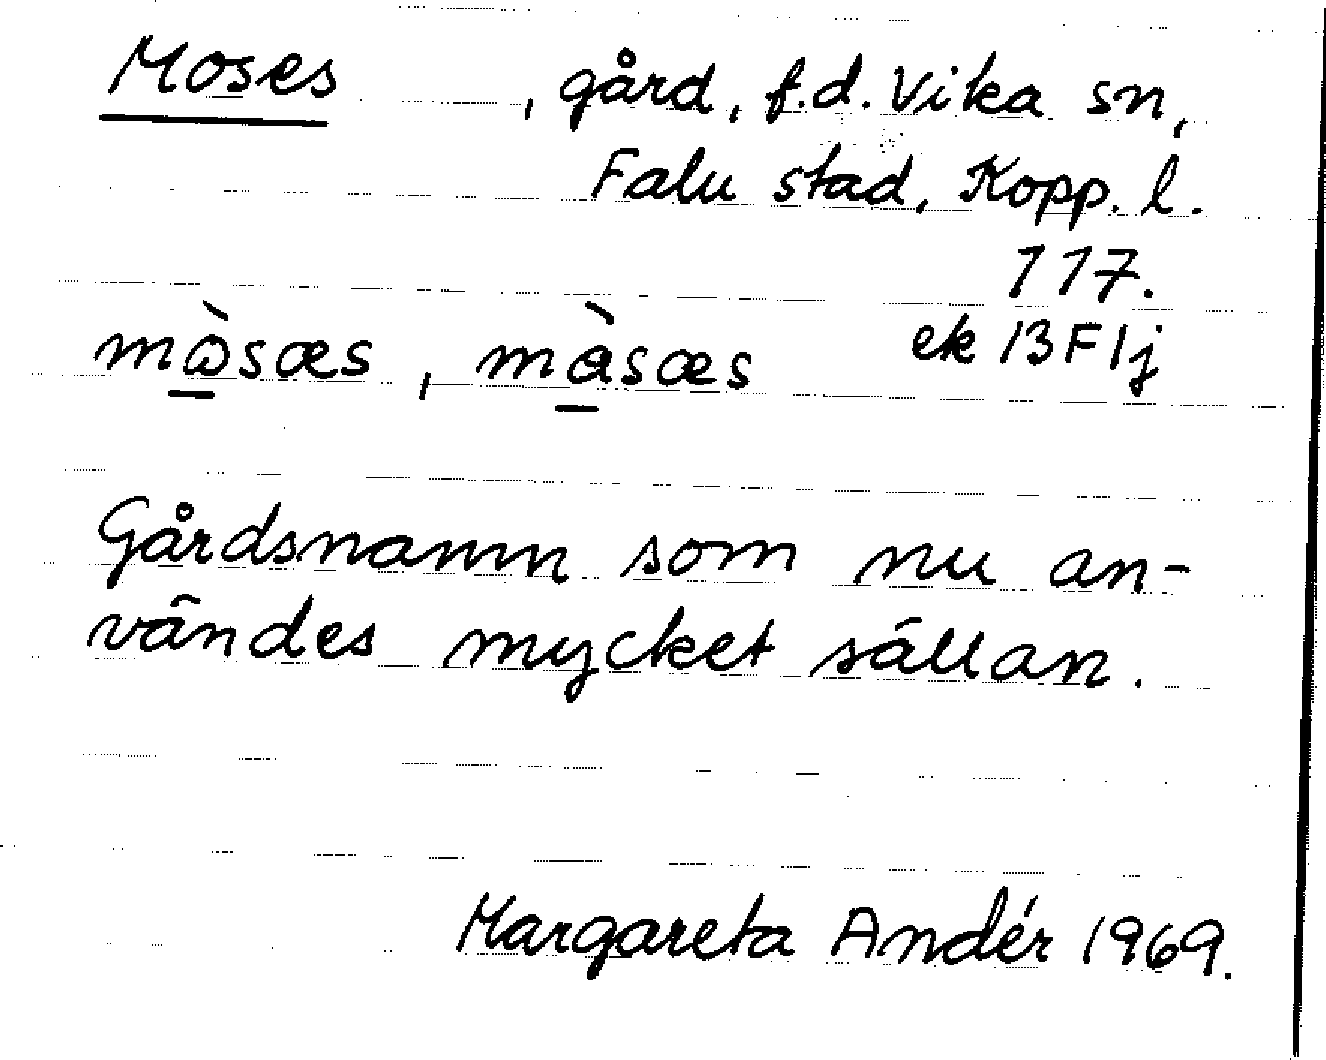 Moses, gård, f.d. Vika sn,
Falu stad, Kopp. l.
117.
mò̱sæs, mà̱sæs ek 13F1j
Gårdsnamn som nu an-
vändes mycket sällan.
Margareta Andér 1969.